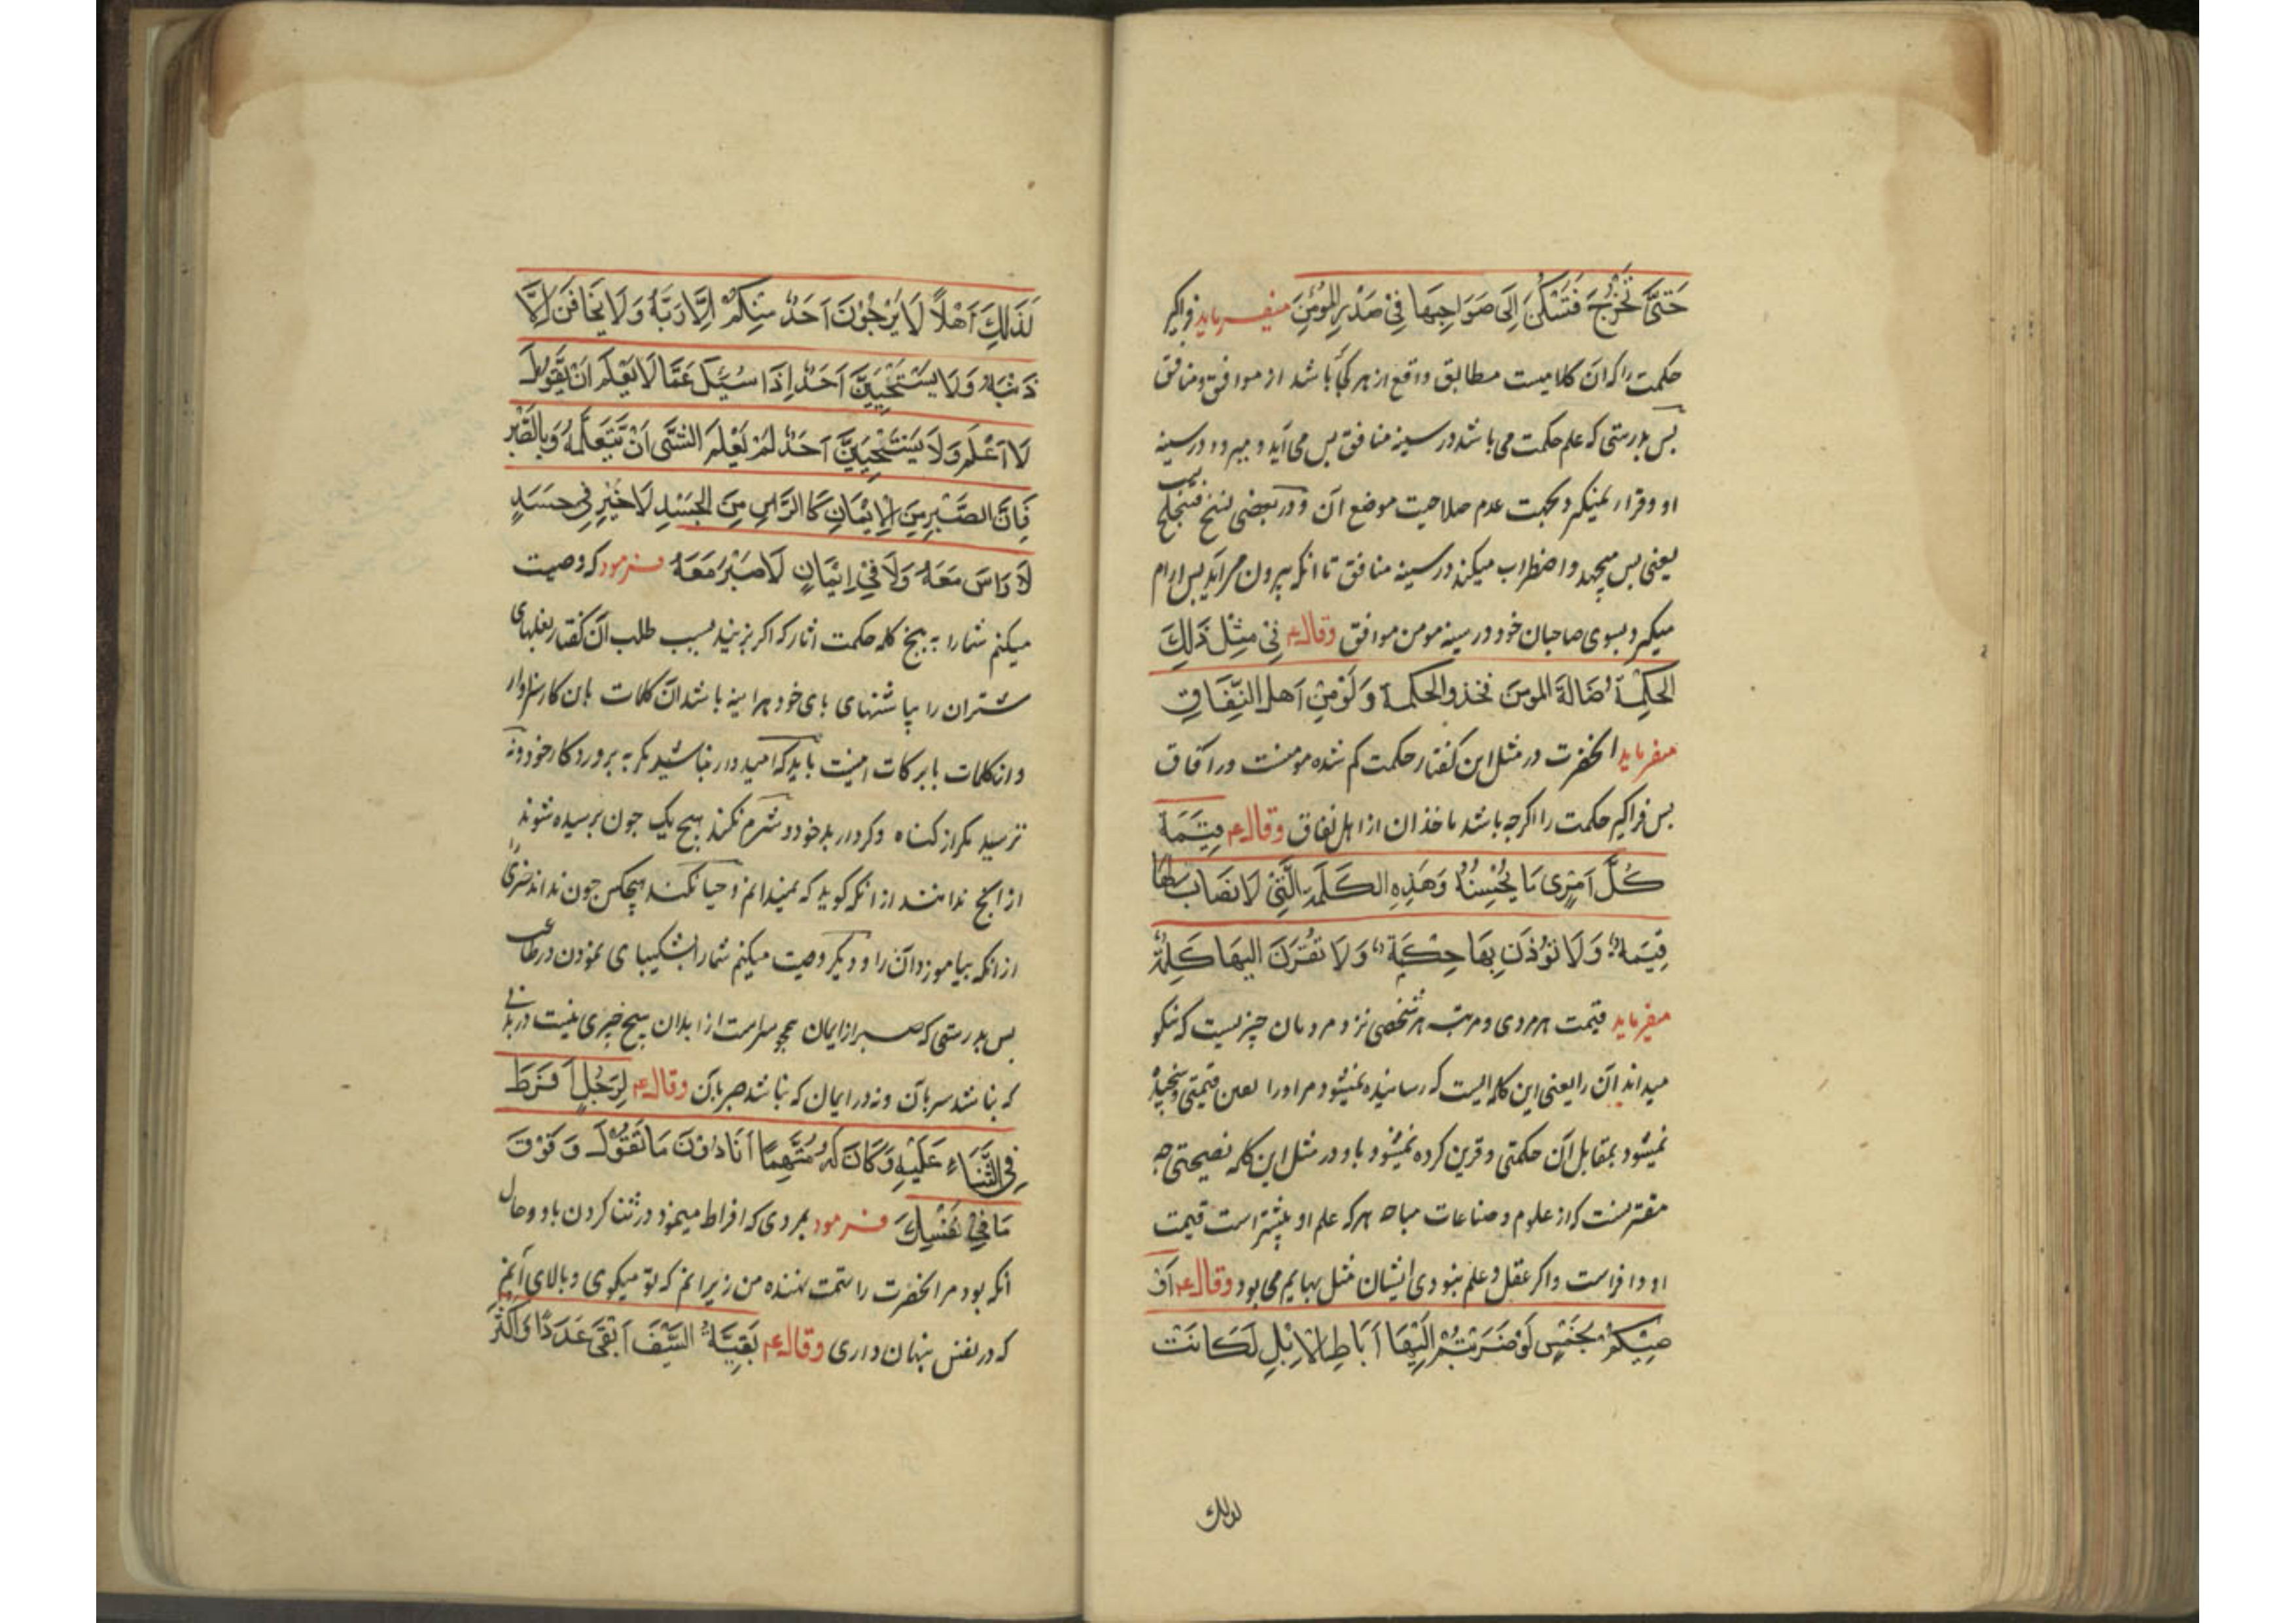 حَتّٰی تَخْرُجَ فَتَسْکُنَ اِلَی صَوَاحِبِهَا فِیْ صَدْرِ الْمُؤْمِنِ میفرماید فراکیر
حکمت را که آن کلامیست مطابق واقع از هر که باشد از موافق و منافق
بس بدرستی که علم حکمت می باشد در سینه منافق بس می آید و میرود در سینه
او و قرار نمیکیرد بجهت عدم صلاحیت موضع آن و در بعضی نسخ فتلجلج
یعنی بس میجهد و اضطراب میکند در سینه منافق تا آنکه بیرون می آید بس آرام
میکیرد بسوی صاحبان خود در سینه مومن موافق وقال ع فِیْ مِثْلِ ذَلِكَ
الحِکْمَةُ ضَالَةُ المومِنَ فخذو الحکمة وَلَوْ مِنْ اَهْلِ النِّفَاقِ
میفرماید آنحضرت در مثل این کفتار حکمت کم شده مومنست در آفاق
بس فراکیر حکمت را اکرجه باشد ماخذ آن از اهل نفاق وقال ع قِیْمَةُ
کُلِّ اَمْرِی مَا یُحْسِنُهُ وَهَذِهِ الکَلِمَةِ الَّتِیْ لَا تُصَابُ لَهَا
قِیْمَةٌ وَلَا تُوْذَنُ بِهَا حِکْمَةٌ وَلَا تُقْرَنَ الیهَا کَلِمَةٌ
میفرماید قیمت هر مردی و مرتبه هر شخصی نزد مردمان چیزیست که نیکو
میداند آن را یعنی این کلمه ایست که رسانیده نمیشود مر او را قیمتی و سنجیده
نمیشود بمقابل آن حکمتی و قرین کرده نمیشود باو در مثل این کلمه نصیحتی چه
مقرر است که از علوم و صناعات مباحه هر که علم او بیشتر است قیمت
او وافر است و اکر عقل و علم نبودی ایشان مثل بهایم می بود وقال ع اُوْ
صِیْکُمْ بِخَمْسٍ لَوْ ضَرَبْتُمْ اِلَیْهَا آبَاطِ الْاِبِلِ لَکَانَتْ
لذلك
لِذَلِكَ اَهْلاً لَا یَرْجُوَنَّ اَحَدٌ مِنْکُمْ اِلَّا رَبَّهُ وَلَا یَخَافَنَ اِلَّا
ذَنْبَهُ وَلَا یَسْتَحْیِیَنَّ اَحَدٌ اِذَا سُئِلَ عَمَّا لَا یَعْلَمُ اَنْ یَّقُوْلَ
لَا اَعْلَمُ وَلَا یَسْتَحْیِیَنَّ اَحَدٌ لَمْ یَعْلَمَ الشَّیَ اَنْ یَّتَعَلَّمَهُ وَبِالصَّبْرِ
فَاِنَّ الصَّبْرِ مِنَ الْاِیْمَانِ کَا الرَّاسِ مِنَ الجَسَدِ لَا خَیْرِ فِی جَسَدٍ
لَا رَاسَ مَعَهُ وَلَا فِیْ اِیْمَانٍ لَا صَبْرَ مَعَهُ فرمود که وصیت
میکنم شما را به پنج کلمه حکمت آثار که اکر بزنید بسبب طلب آن کفتار بغلهای
شتران را بپاشنهای بای خود هر اینه باشد آن کلمات بان کار سزاوار
و آن کلمات با برکات اینست باید که امیدوار نباشید مکر به پروردکار خود و نه
ترسید مکر از کناه و کردار بد خود و شرم نکند هیچ یک چون برسیده شوند
از آنچ ندانند از آنکه کوید که نمیدانم و حیا نکند هیچکس چون نداند چیزی را
از آنکه بیاموزد آن را و دیکر وصیت میکنم شما را بشکیبای نمودن در طاعت
بس بدرستی که صبر از ایمان همچو سر است از ابدان هیچ خیری نیست در بدنی
که نباشد سر بآن و نه در ایمان که نباشد صبر بآن وقال ع لِرَجُلٍ اَفْرَطَ
فِی الثَّنَاءِ عَلَیْهِ وَکَانَ لَهُ مُتَّهِمًا اَنَا دُوْنَ مَا تَقُوْلُ وَ فَوْقَ
مَا فِیْ نَفْسِكَ فرمود بمردی که افراط مینمود در ثنا کردن باو و حال
آنکه بود مر آنحضرت را تهمت نهنده من زیر آنم که تو میکوی و بالای آنم
که در نفس پنهان داری وقال ع بَقِیَّةُ السَّیْفِ اَبْقَی عَدَدًا وَاَکْثَرُ